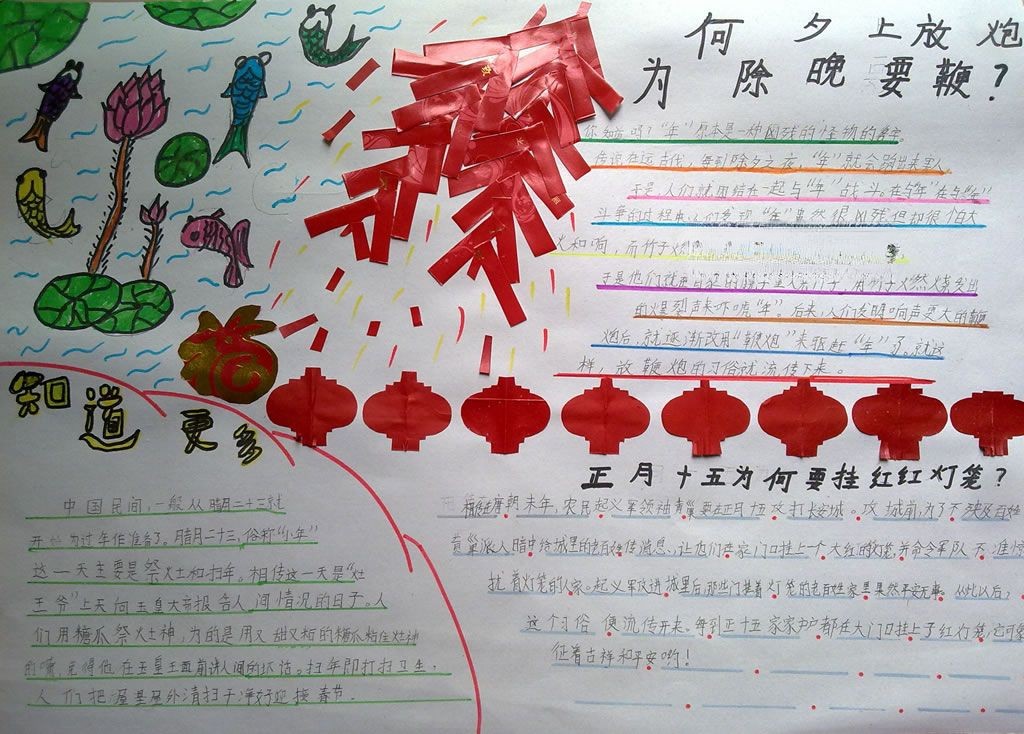 何夕上放炮
为除晚要鞭？
你知道吗？“年”原本是一种凶残的怪物的名字
传说在远古代，每到除夕之夜，“年”就会跑出来害人
于是，人们就团结在一起与“年”战斗。在与“年”在与“年”
斗争的过程中，人们发现“年”虽然很凶残但却很怕大
火和响，而竹子火燃
于是他们就用自家的
的爆裂声来吓唬“年”。后来，人们发明响声更大的鞭
炮后，就逐渐改用“鞭炮”来驱赶“年”了。就这
样，放鞭炮的习俗就流传下来。
福
知道更多
中国民间，一般从腊月二十三就
开始为过年作准备了。腊月二十三，俗称“小年”
这一天主要是祭灶和扫年。相传这一天是“灶
王爷”上天向玉皇大帝报告人间情况的日子。人
们用糖瓜祭灶神，为的是用又甜又粘的糖瓜粘住灶神
的嘴，免得他在玉皇王面前讲人间的坏话。扫年即打扫卫生，
人们把屋里屋外清扫干净好迎接春节。
正月十五为何要挂红红灯笼？
相传在唐朝末年，农民起义军领袖黄巢要在正月十五攻打长安城。攻城前，为了不殃及百姓
黄巢派人暗中给城里的老百姓传消息、让他们在家门口挂上一个大红的灯笼并命令军队不准惊
扰着灯笼的人家。起义军攻进城里后，那些门挂着灯笼的老百姓家里果然平安无事。从此以后，
这个习俗便流传开来。每到正十五家家户户都在大门口挂上了红灯笼，它可象
征着吉祥和平安哟！